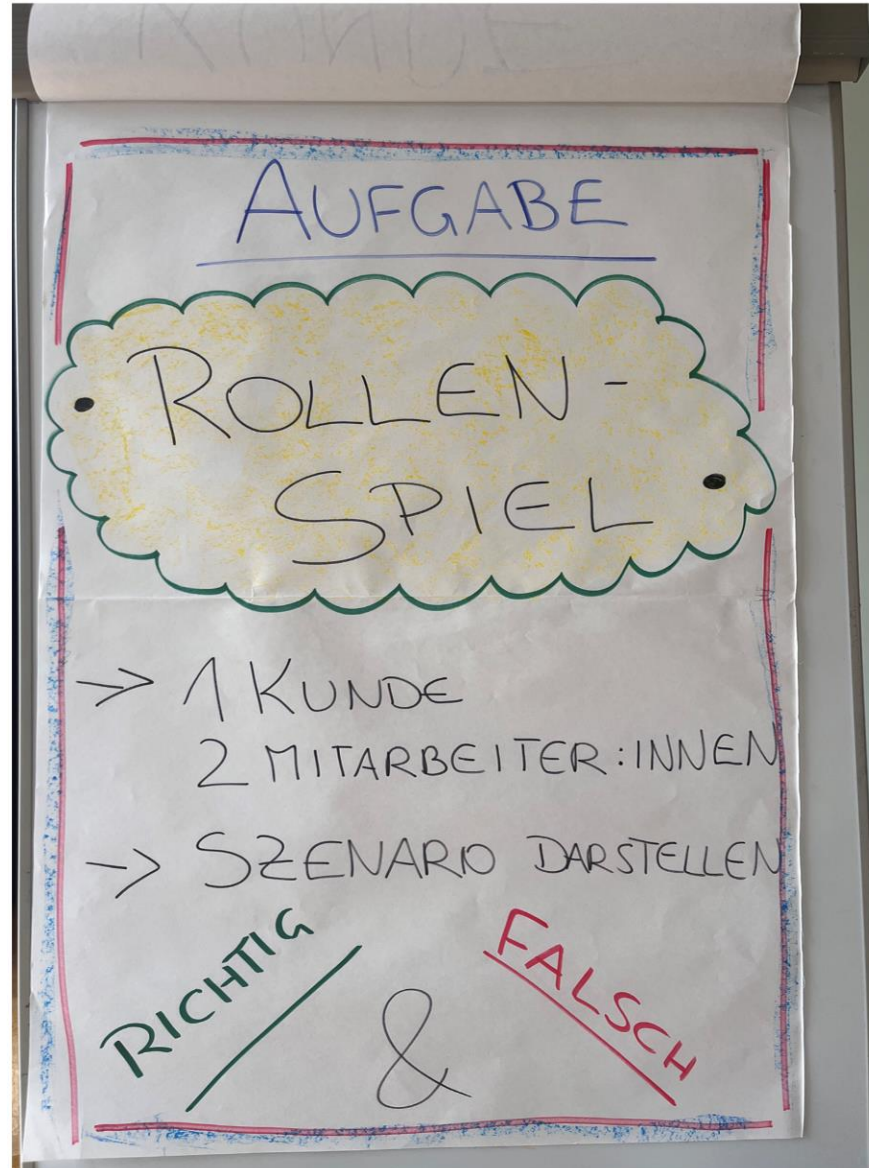 AUFGABE
ROLLEN-
SPIEL
→ 1 KUNDE
2 MITARBEITER:INNEN
→ SZENARIO DARSTELLEN
RICHTIG
&
FALSCH